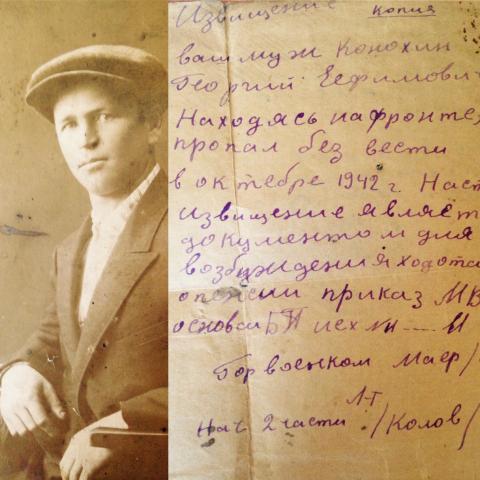 Извищение копия
ваш муж Конохин
Георгий Еефимови
Находясь на фронте,
пропал без вести
в октебре 1942 г. Наст
извищение являет
документом для
возбуждения ходота
о пенсии приказ МВ
основан исх
Горвоенком Маер/
Лт
Нач 2 части /Колов/